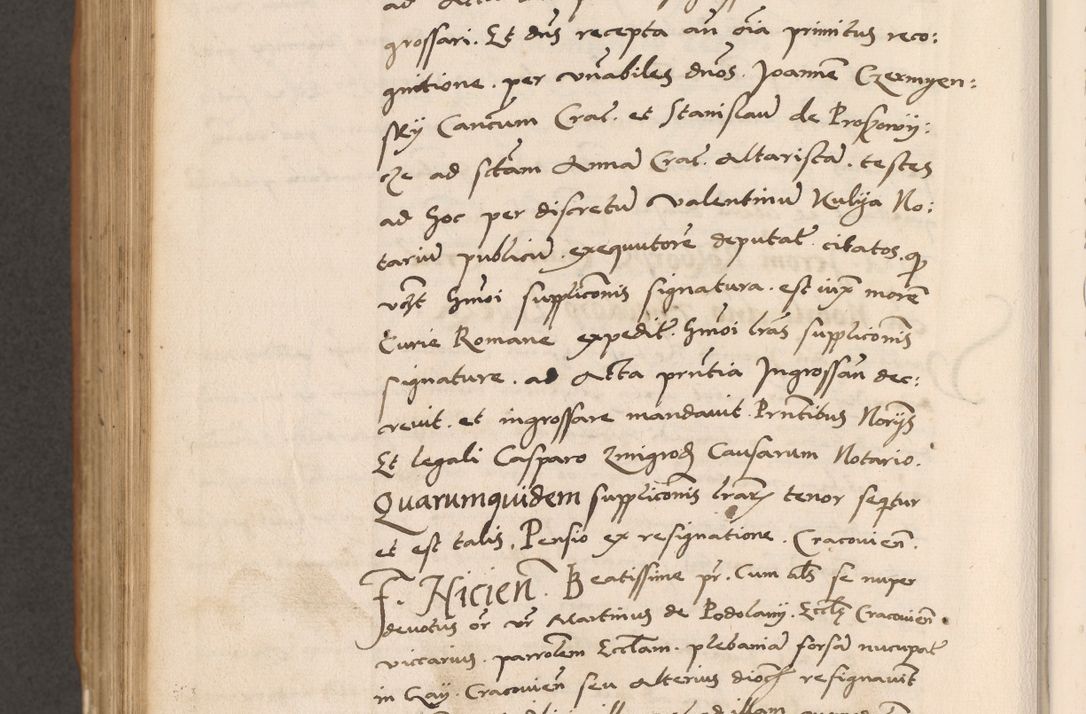 grossari. Et dns recepta an oia primitus reco:
gnitione. per vnabiles dnos. Joannem Czermyen:
sky Cancum Crac. et Stanislau de Proßowy:
cze ad sctam Anna Crac. Altarista. testes
ad hoc per discretu Valentinu Kulya No:
tariu publicu. exequutore deputat. citatos. q
vt hmoi supplicoms signatura. est iuxta more
Curie Romane expedit. hmoi lras supplicoms
signature. ad Acta pntia Ingrossan dec:
revit. et ingrossare mandavit. Pntibus Norys
Et legali Casparo Zmigrod Causarum Notario.
Quarumquidem supplicoms lrar tenor seqtur
et est talis. Pensio ex resignatione. Cracovien.
F. Nicien. Beatissime pr. Cum als se nuper
devotus or vr Martinus de Podolany. Eccle Cracovien
viccarius. parrolem Ecclam. plebania forsa nucupat
in Gay. Cracovien seu alterius dioc resignavit